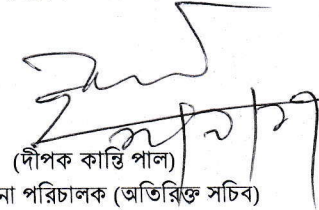 (দীপক কান্তি পাল)
না পরিচালক (অতিরিক্ত সচিব)